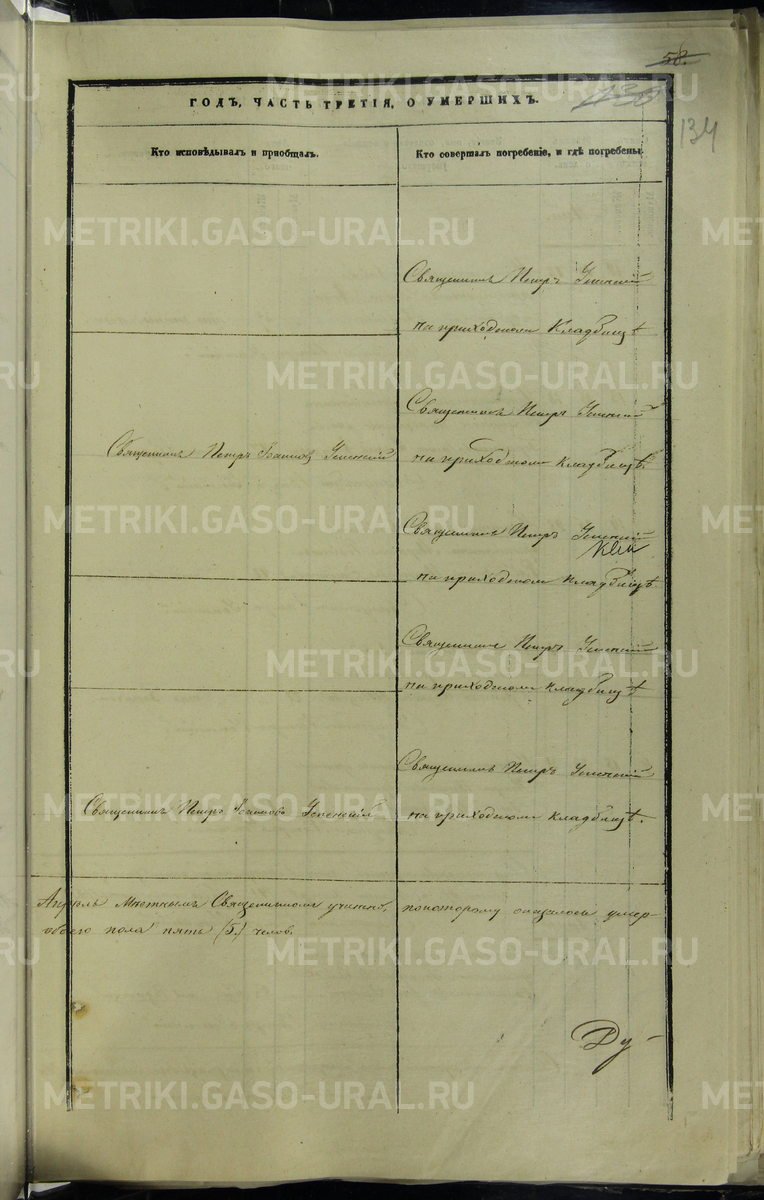 58.
130
134
ГОДЪ, ЧАСТЬ ТРЕТІЯ, О УМЕРШИХЪ.
Кто исповѣдывалъ и пріобщалъ.
Кто совершалъ погребеніе, и гдѣ погребены.
Священникъ Петръ Успенскій
на приходскомъ Кладбищѣ
Священникъ Петръ Іоанновъ Успенскій
Священникъ Петръ Успенскій
на приходскомъ кладбищѣ.
Священникъ Петръ Успенскій
на приходскомъ кладбищѣ
Священникъ Петръ Успенскій
на приходскомъ кладбищѣ
Священникъ Петръ Іоанновъ Успенскій
Священникъ Петръ Успенскій
на приходскомъ кладбищѣ.
Апрѣль Мѣстнымъ Священникомъ учинено, по которому оказалось умер-
обоего пола пять (5.) челов.
Ду-
METRIKI.GASO-URAL.RU